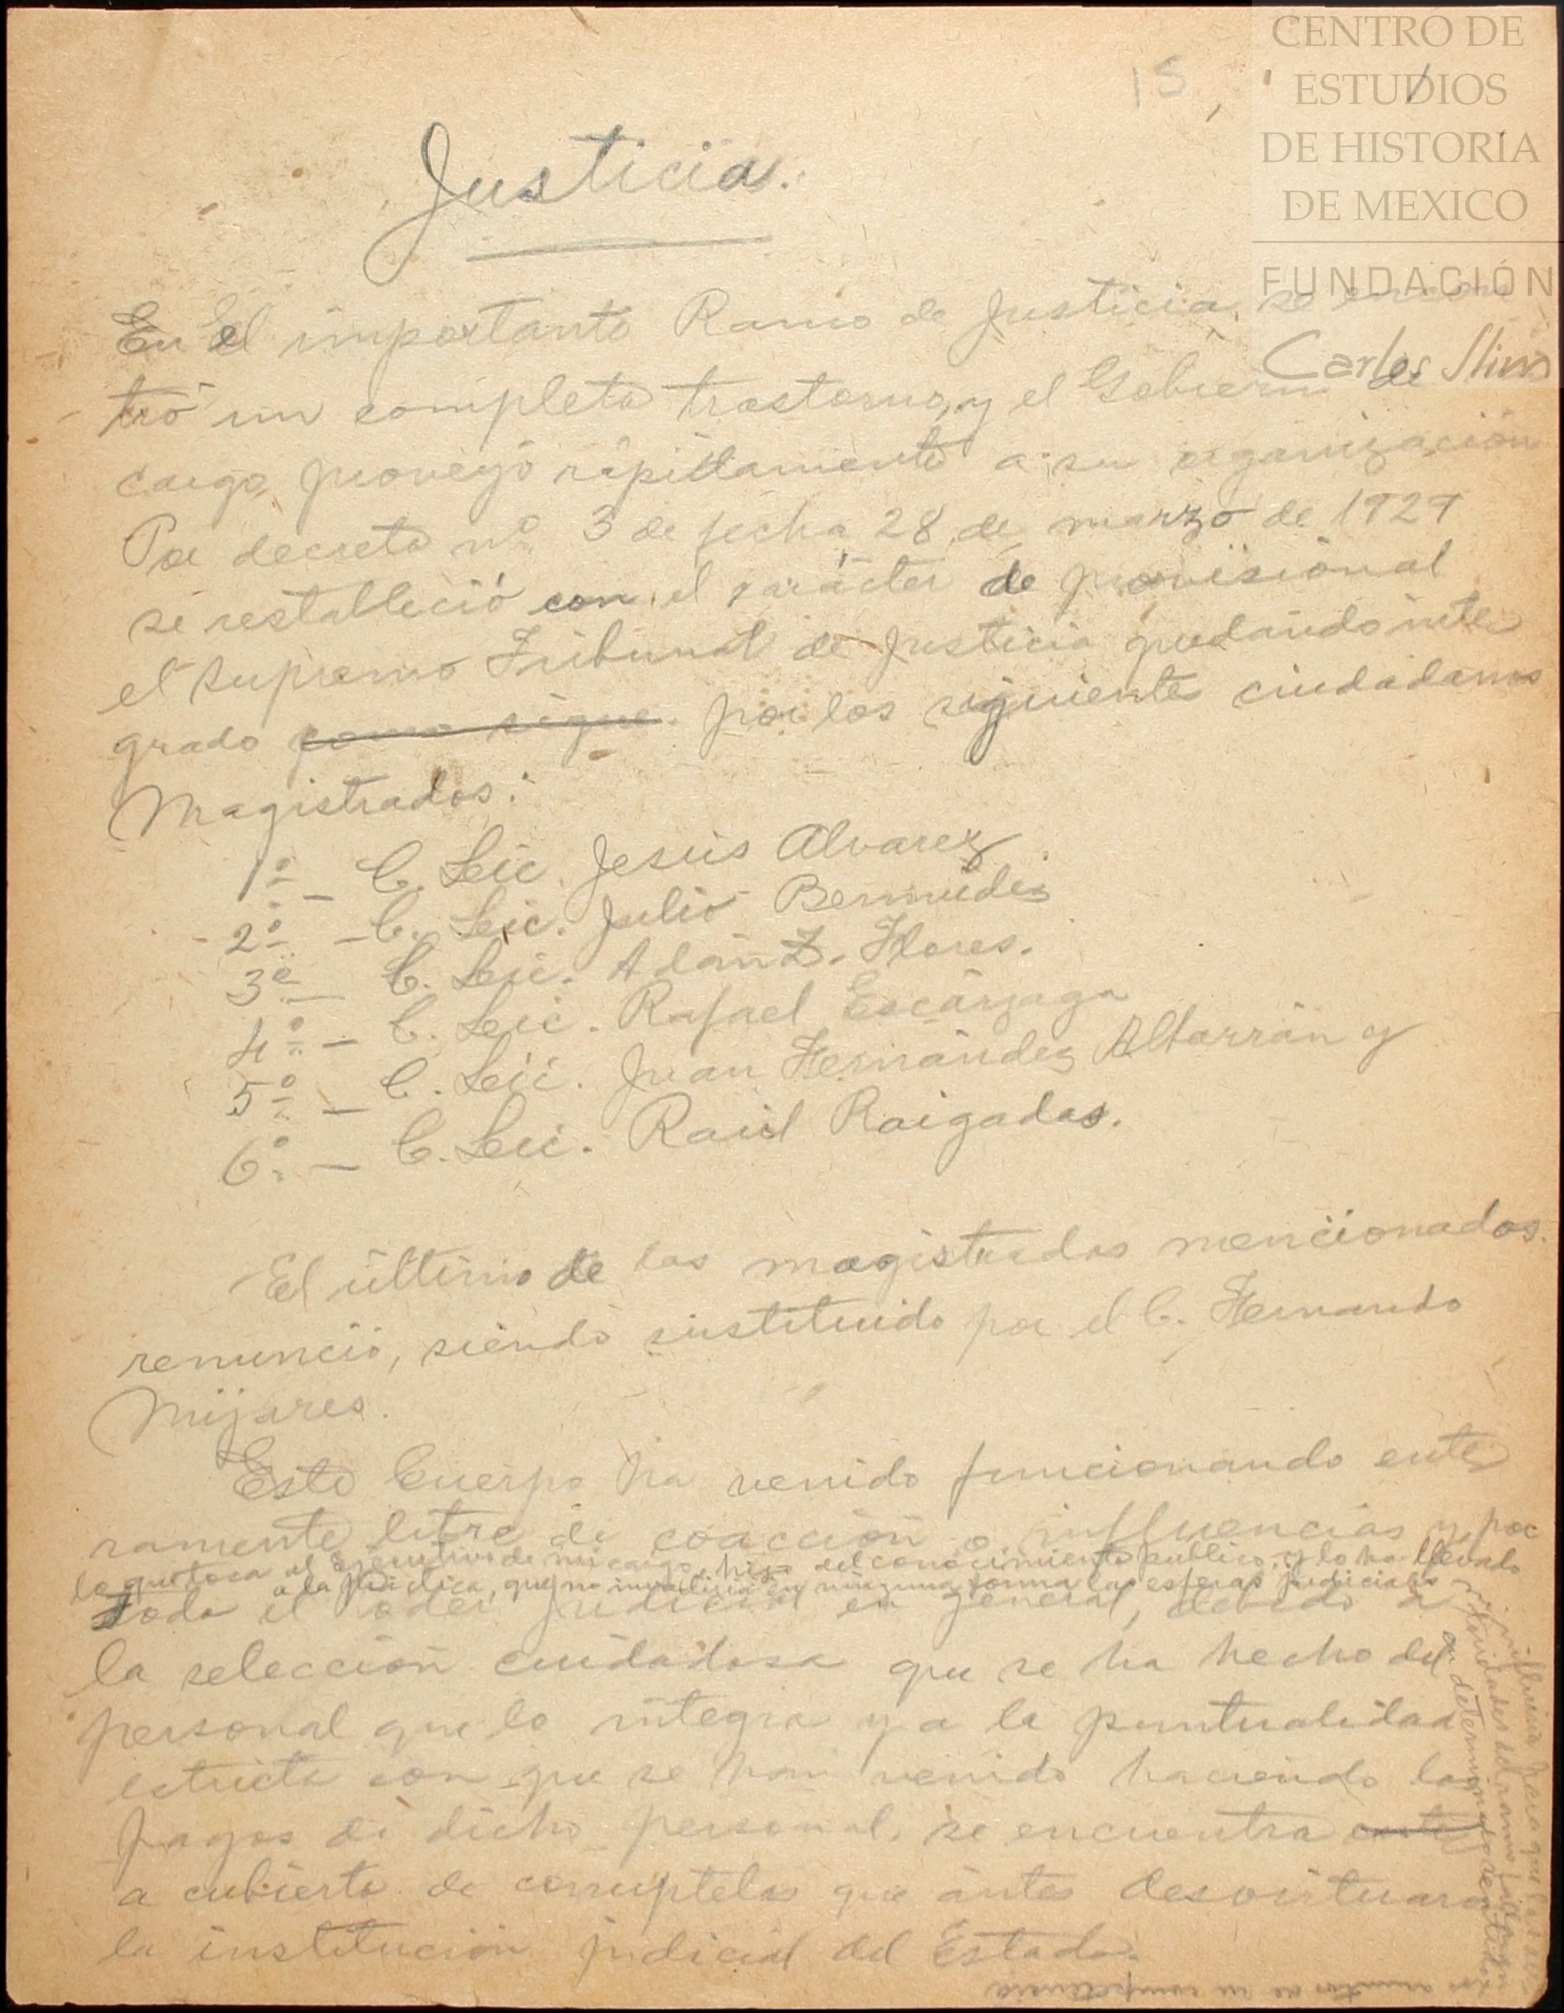 CENTRO DE
ESTUDIOS
DE HISTORIA
DE MEXICO
FUNDACIÓN
Carlos Slim
15
Justicia.
En el importante Ramo de Justicia, se encon
tró un completo trastorno, y el Gobierno de
cargo, proveyó rápidamente a su organización
Por decreto nº 3 de fecha 28 de marzo de 1929
se restableció con el carácter de provisional
el Supremo Tribunal de Justicia quedando inte
grado como sigue. por los siguientes ciudadanos
Magistrados:
1º - C. Lic. Jesús Alvarez
2º - C. Lic. Julio Bermúdez
3º - C. Lic. Adán Z. Flores.
4º - C. Lic. Rafael Escárzaga
5º - C. Lic. Juan Hernández Albarrán y
6º - C. Lic. Raúl Raigadas.
El último de los magistrados mencionados.
renunció, siendo sustituido por el C. Fernando
Mijares.
Este Cuerpo ha venido funcionando ente
ramente libre de coacción o influencias y, por
el Ejecutivo de mi cargo, hizo del conocimiento público, y lo ha llevado
a la práctica, que no invadiría en ninguna forma las esferas judiciales
todo el Poder Judicial en general, debido a
la selección cuidadosa que se ha hecho del
personal que lo integra y a la puntualidad
estricta con que se han venido haciendo los
pagos de dicho personal, se encuentra
a cubierto de corruptelas que antes desvirtuaron
la institución judicial del Estado.
en determinado sentido
los asuntos de su competencia